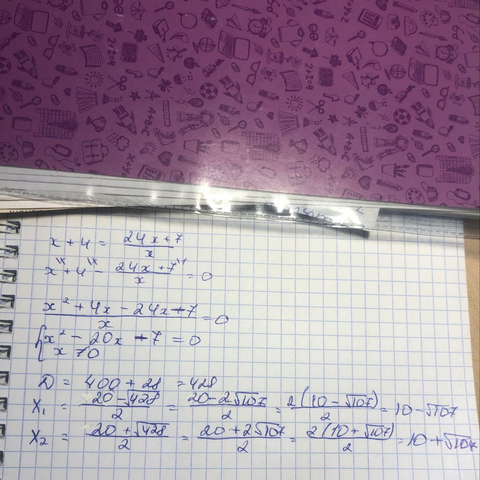 x + 4 = \frac{24x+7}{x}
x^{\x} + 4^{\x} - \frac{24x+7^{\1}}{x} = 0
\frac{x^2 + 4x - 24x - 7}{x} = 0
{ x^2 - 20x - 7 = 0
x ≠ 0
D = 400 + 28 = 428
X_1 = \frac{20 - \sqrt{428}}{2} = \frac{20 - 2\sqrt{107}}{2} = \frac{2(10 - \sqrt{107})}{2} = 10 - \sqrt{107}
X_2 = \frac{20 + \sqrt{428}}{2} = \frac{20 + 2\sqrt{107}}{2} = \frac{2(10 + \sqrt{107})}{2} = 10 + \sqrt{107}